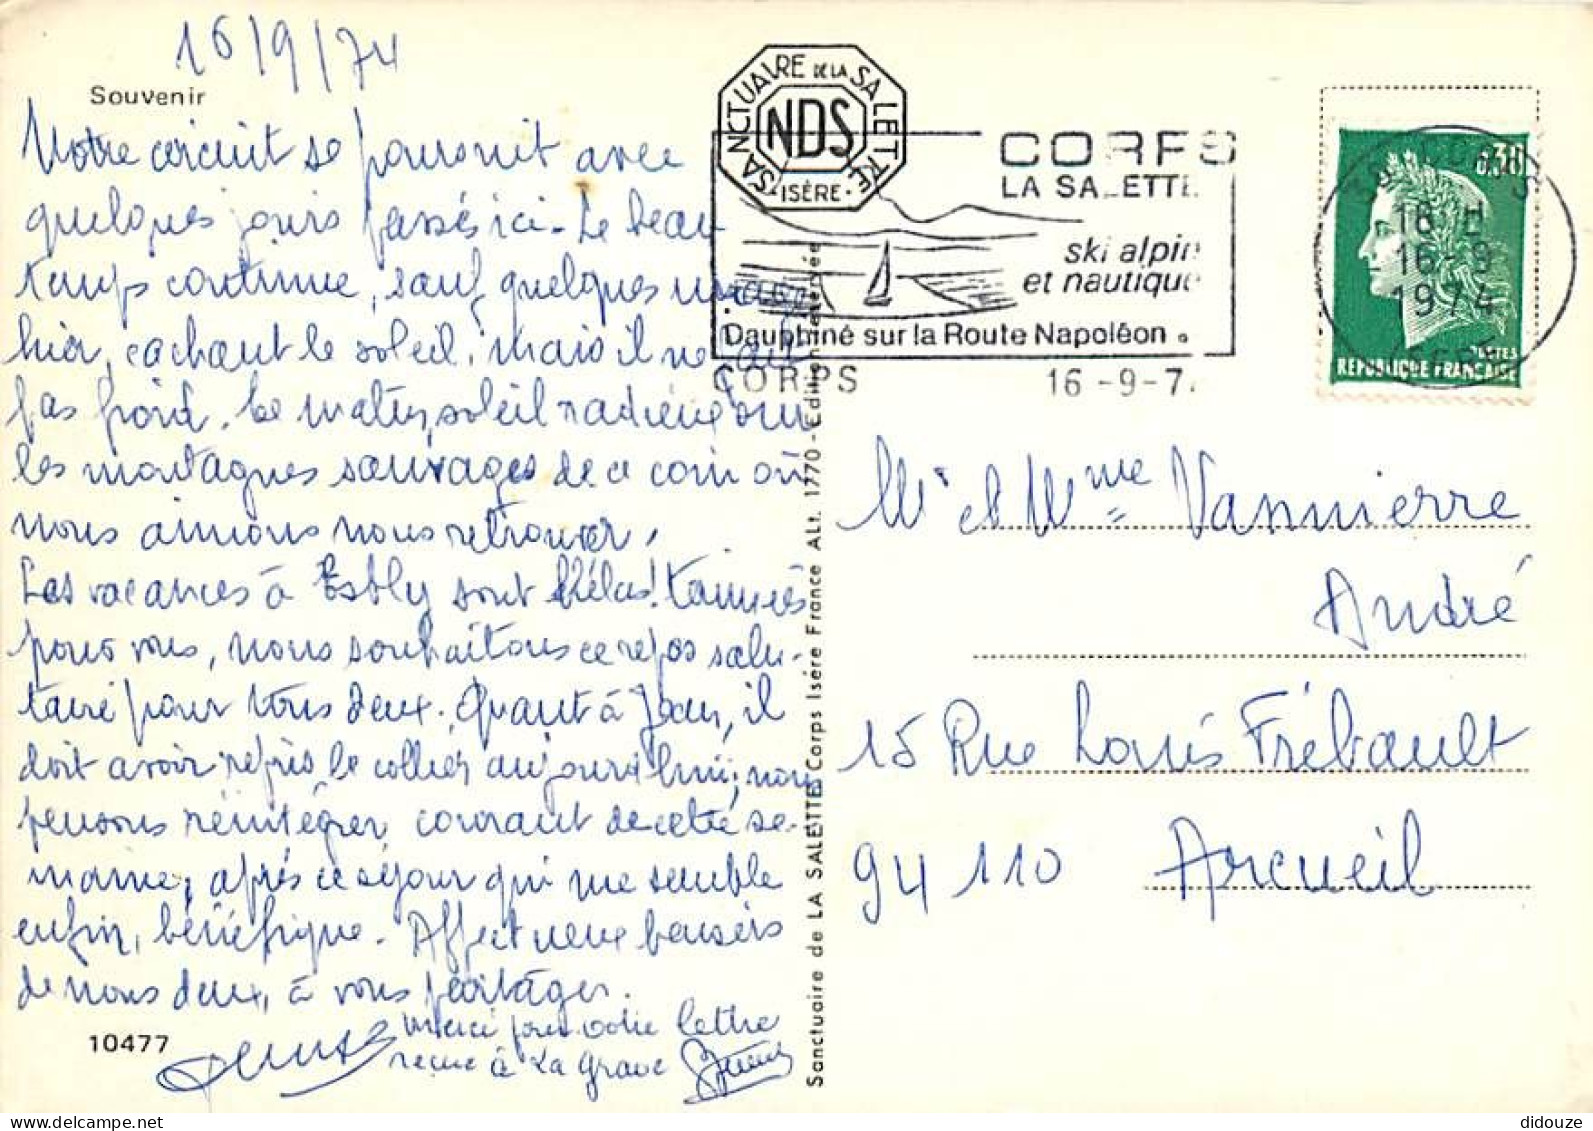 16/9/74
Souvenir
Notre circuit se poursuit avec
quelques jours passés ici. Le beau
temps continue, sauf quelques nua
hier, cachant le soleil, mais il ne fait
pas froid. Ce matin, soleil radieux sur
les montagnes sauvages de ce coin où
nous aimons nous retrouver.
Les vacances à Esbly sont hélas! terminées
pour vous, nous souhaitons ce repos salu-
taire pour vous deux. Quant à Jean, il
doit avoir repris le collier aujourd'hui; nous
pensons réintégrer, courant de cette se-
maine, après ce séjour qui me semble
enfin, bénéfique. Affectueux baisers
de nous deux, à vous partager.
merci pour votre lettre
reçue à La Grave
10477
SANCTUAIRE DE LA SALETTE
NDS
-ISÈRE-
CORPS
LA SALETTE
ski alpin
et nautique
Dauphiné sur la Route Napoléon
CORPS 16-9-7
38 CORPS
16 H
16-9
1974
ISERE
0,30
POSTES
REPUBLIQUE FRANÇAISE
Sanctuaire de LA SALETTE Corps Isère France Alt. 1770 - Edition réservée
Mr et Mme Vannierre
André
15 Rue Louis Frébault
94110 Arcueil
didouze